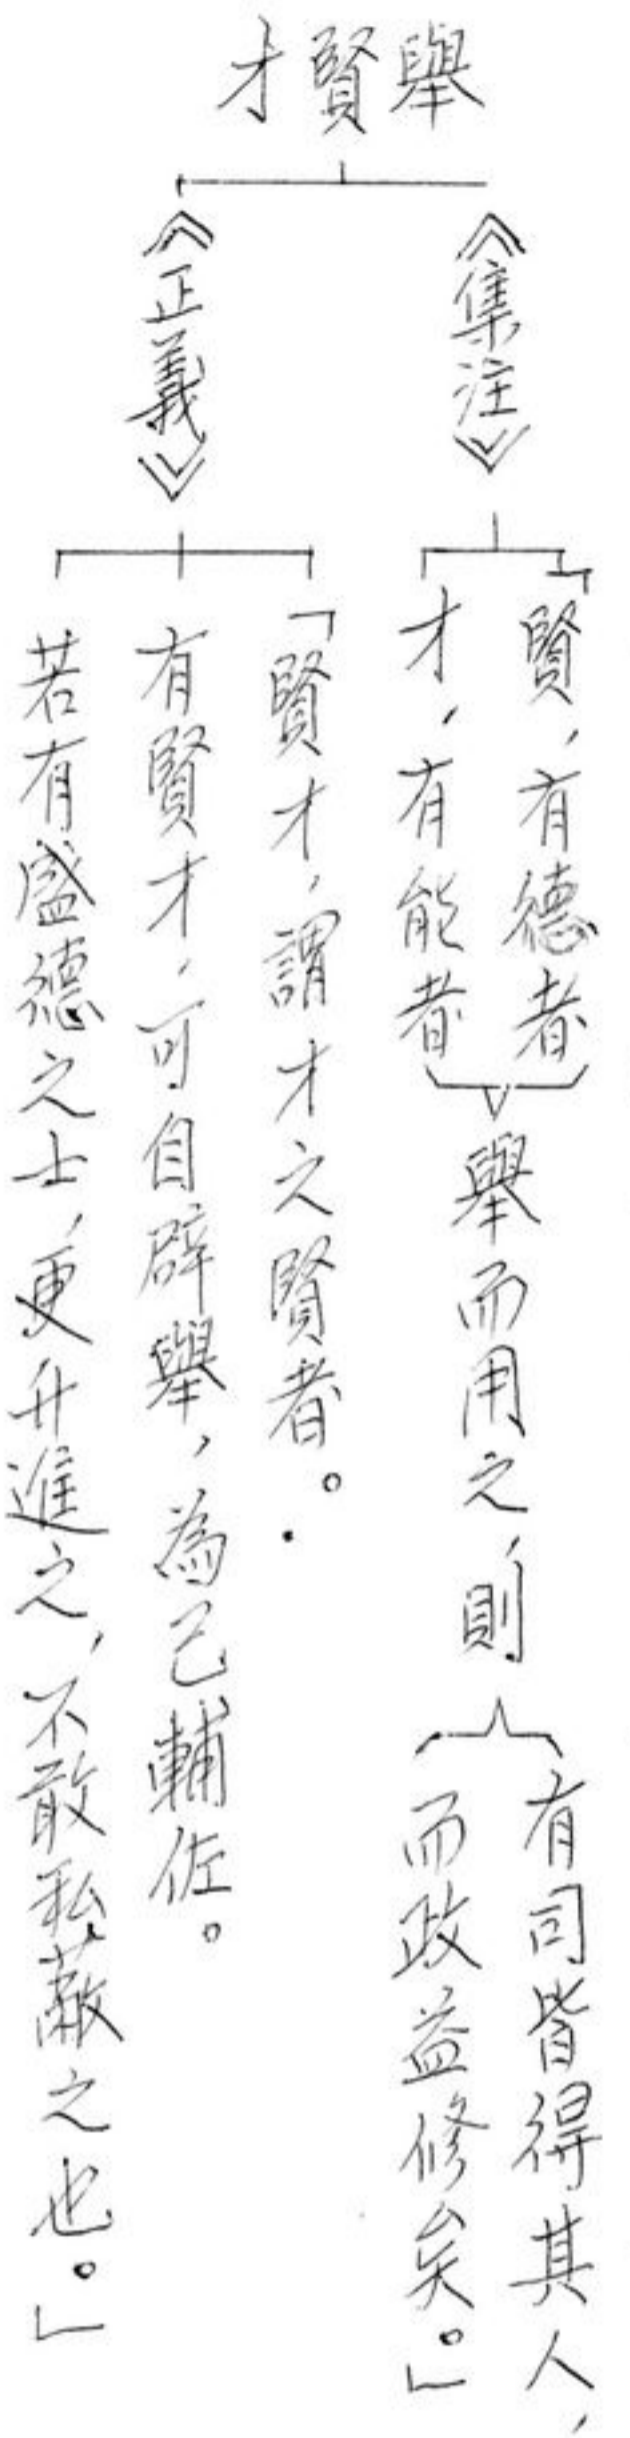 舉賢才
《集注》
「賢，有德者
才，有能者
舉而用之，則
有司皆得其人，
而政益修矣。」
《正義》
「賢才，謂才之賢者。
有賢才，可自辟舉，為己輔佐。
若有盛德之士，更升進之，不敢私蔽之也。」